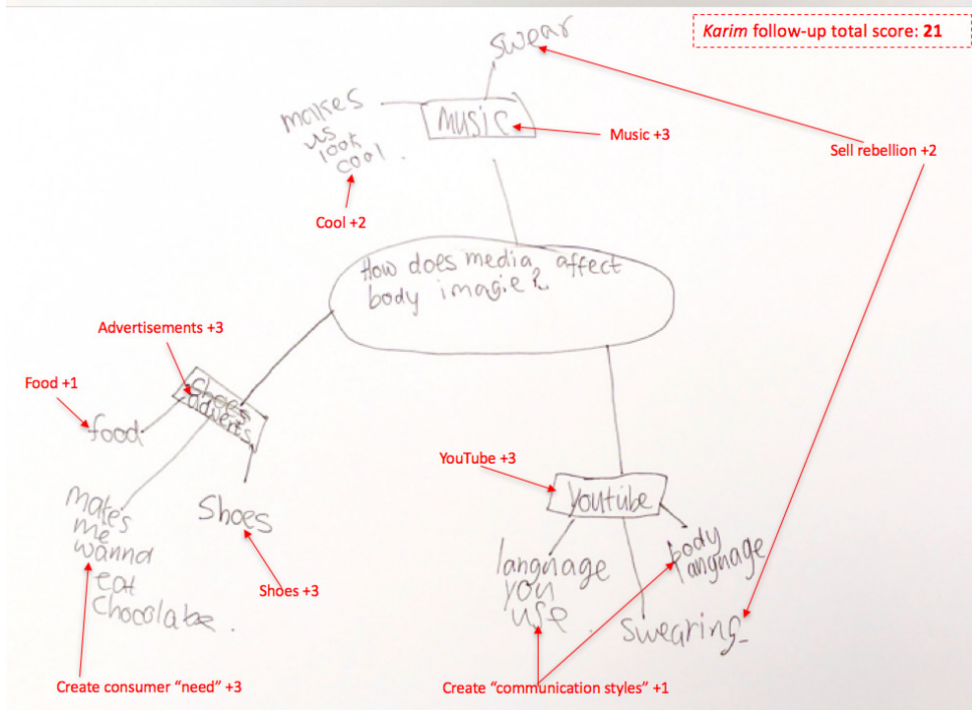 Karim follow-up total score: 21
swear
makes
us
look
cool.
MUSIC
Music +3
Sell rebellion +2
Cool +2
How does media affect
body imagie?
Advertisements +3
Food +1
Shoes
adverts
food
YouTube +3
Youtube
Shoes
makes
me
wanna
eat
chocolate.
Shoes +3
language
you
use
body
language
swearing
Create consumer “need” +3
Create “communication styles” +1